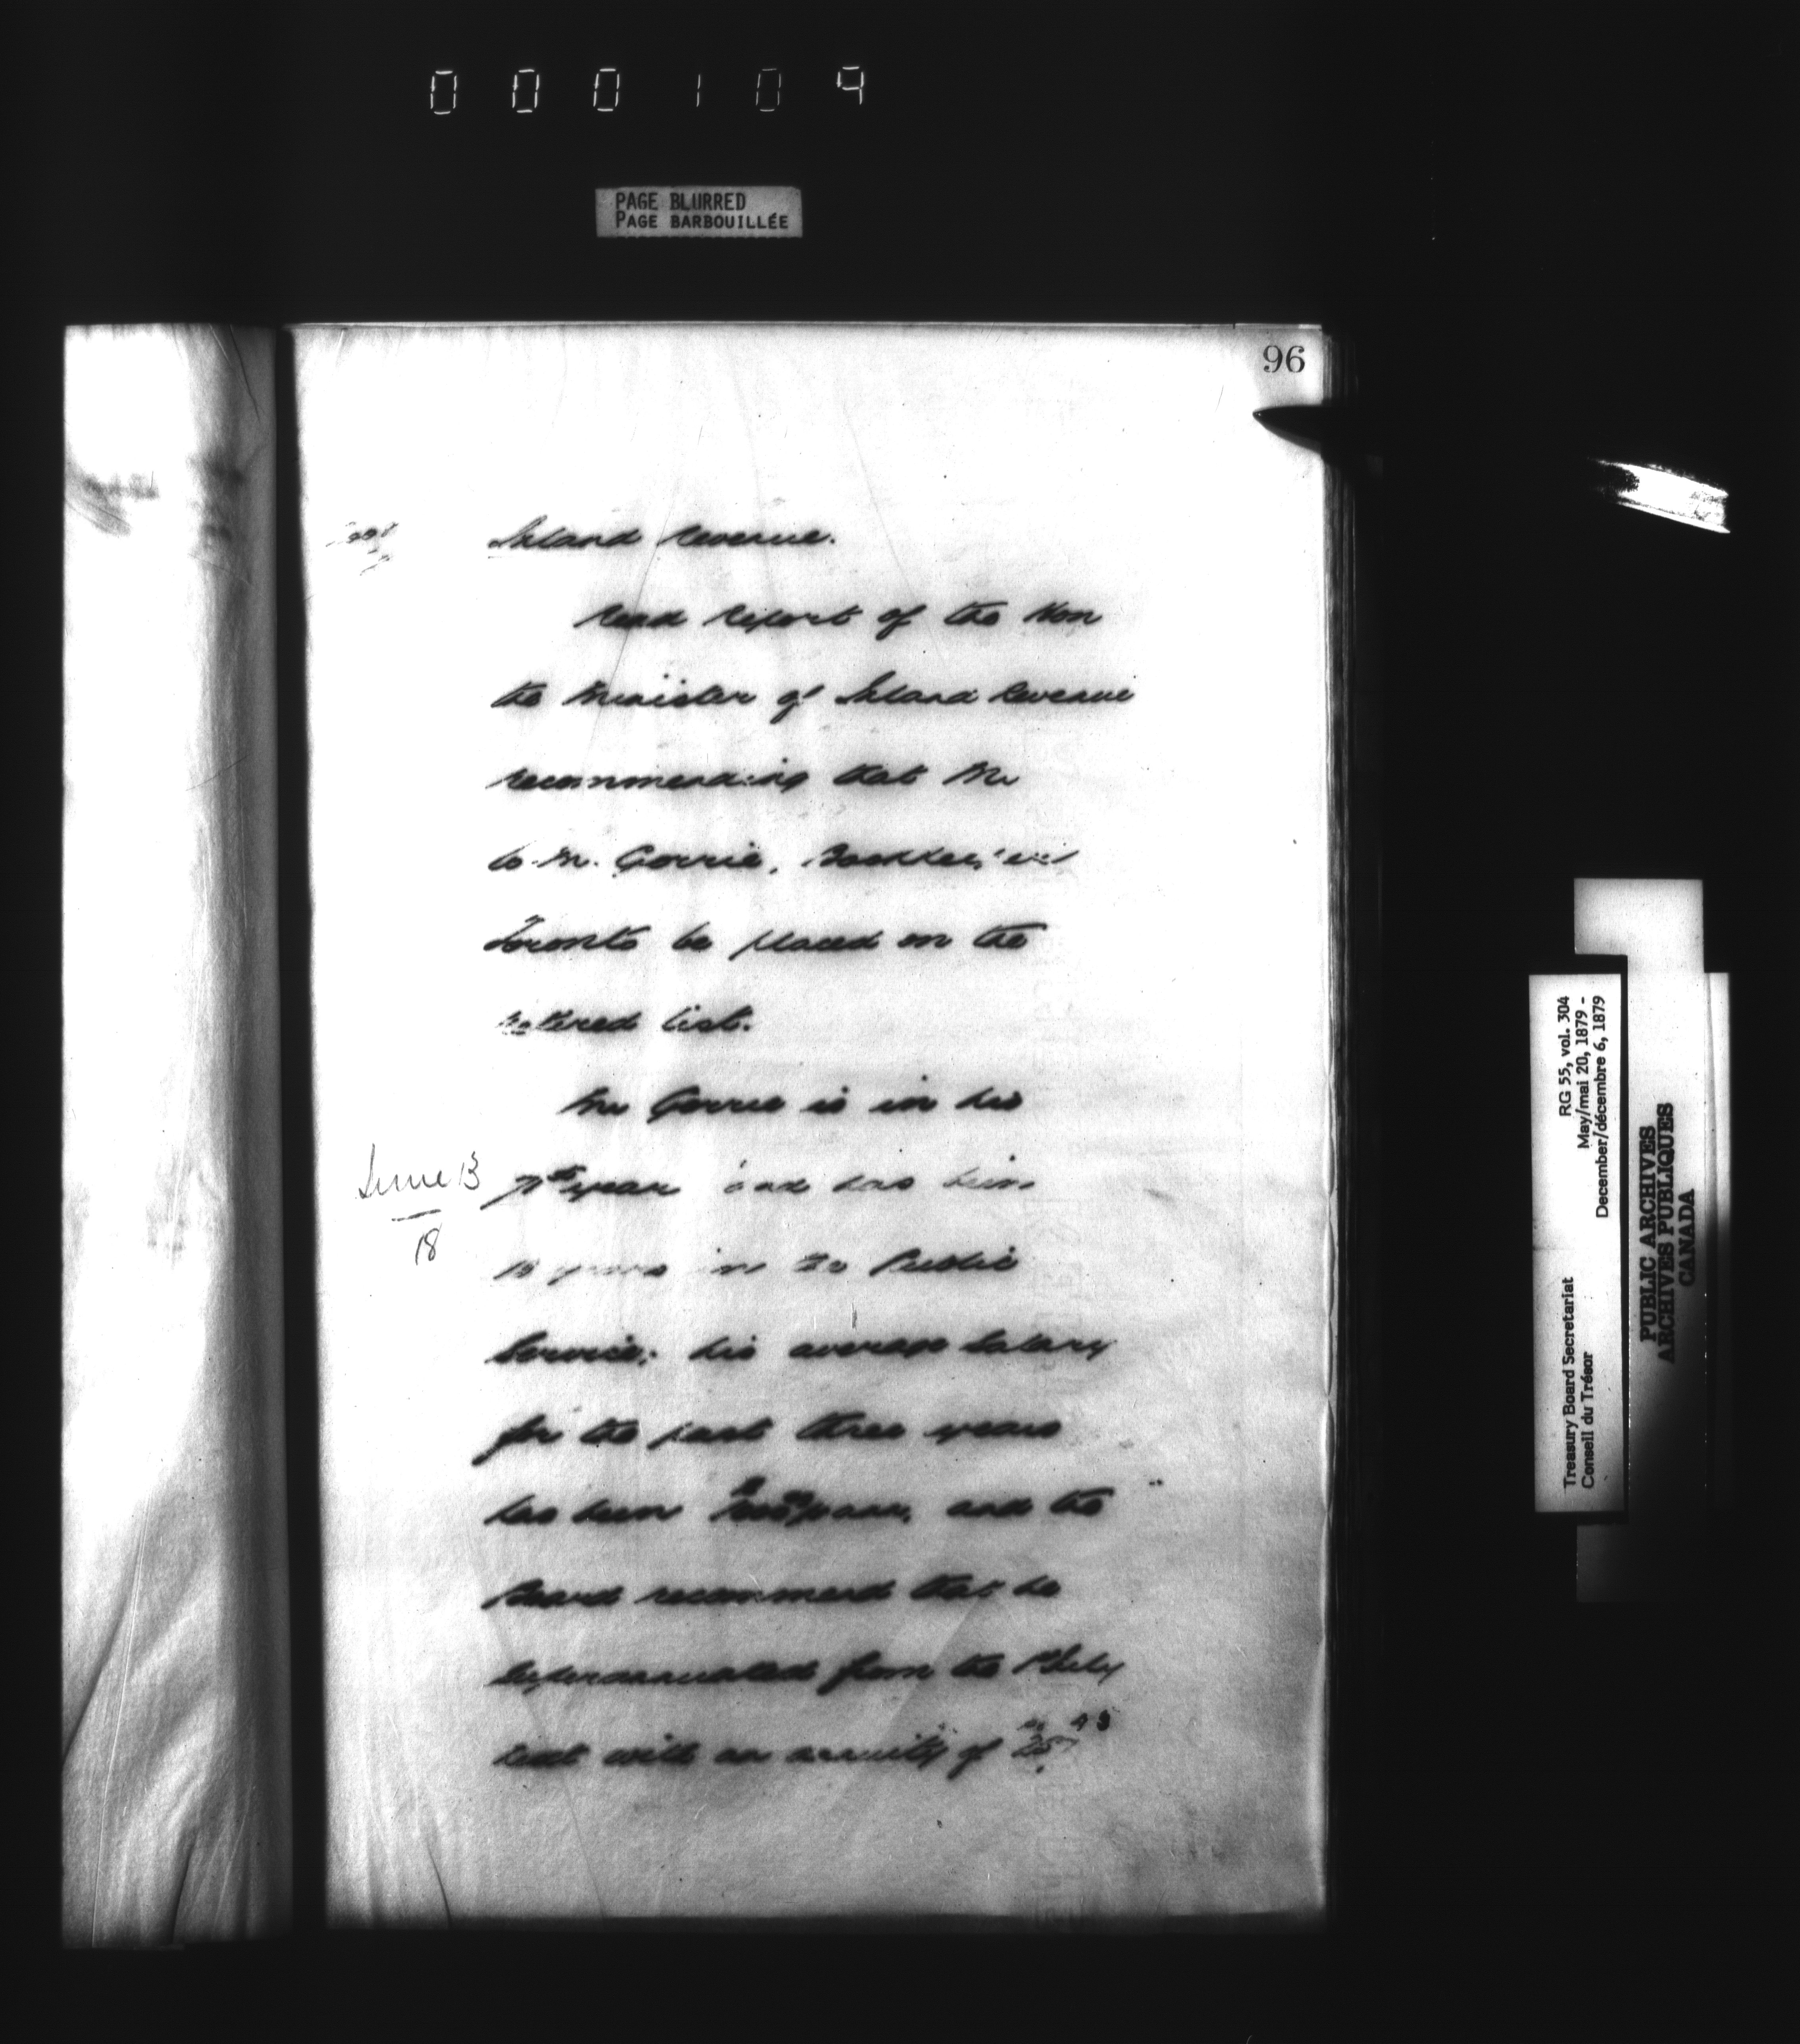 000109
PAGE BLURRED
PAGE BARBOUILLÉE
96
Inland Revenue.
Read Report of the Hon
the Minister of Inland Revenue
recommending that Mr
M. Gorrie,
Toronto be placed on the
retired list.
Mr Gorrie is in his
year and has been
years in the Public
Service; his average Salary
for the past three years
has been and the
Board recommend that he
Superannuated from the
List with an annuity of
June 13
18
RG 55, vol. 304
May/mai 20, 1879 -
December/décembre 6, 1879
Treasury Board Secretariat
Conseil du Trésor
PUBLIC ARCHIVES
ARCHIVES PUBLIQUES
CANADA